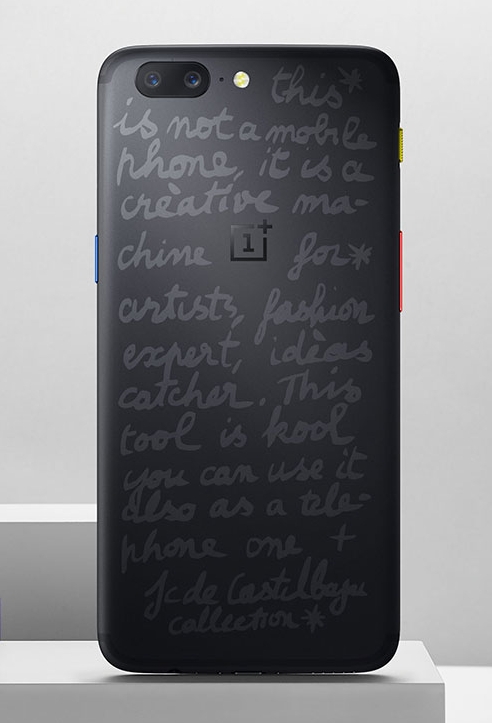 this*
is not a mobile
phone, it is a
crèative ma-
chine 1+ for*
artists, fashion
expert, idèas
catcher. This
tool is kool
you can use it
also as a tele-
phone one +
Jc de Castelbajac
collection*